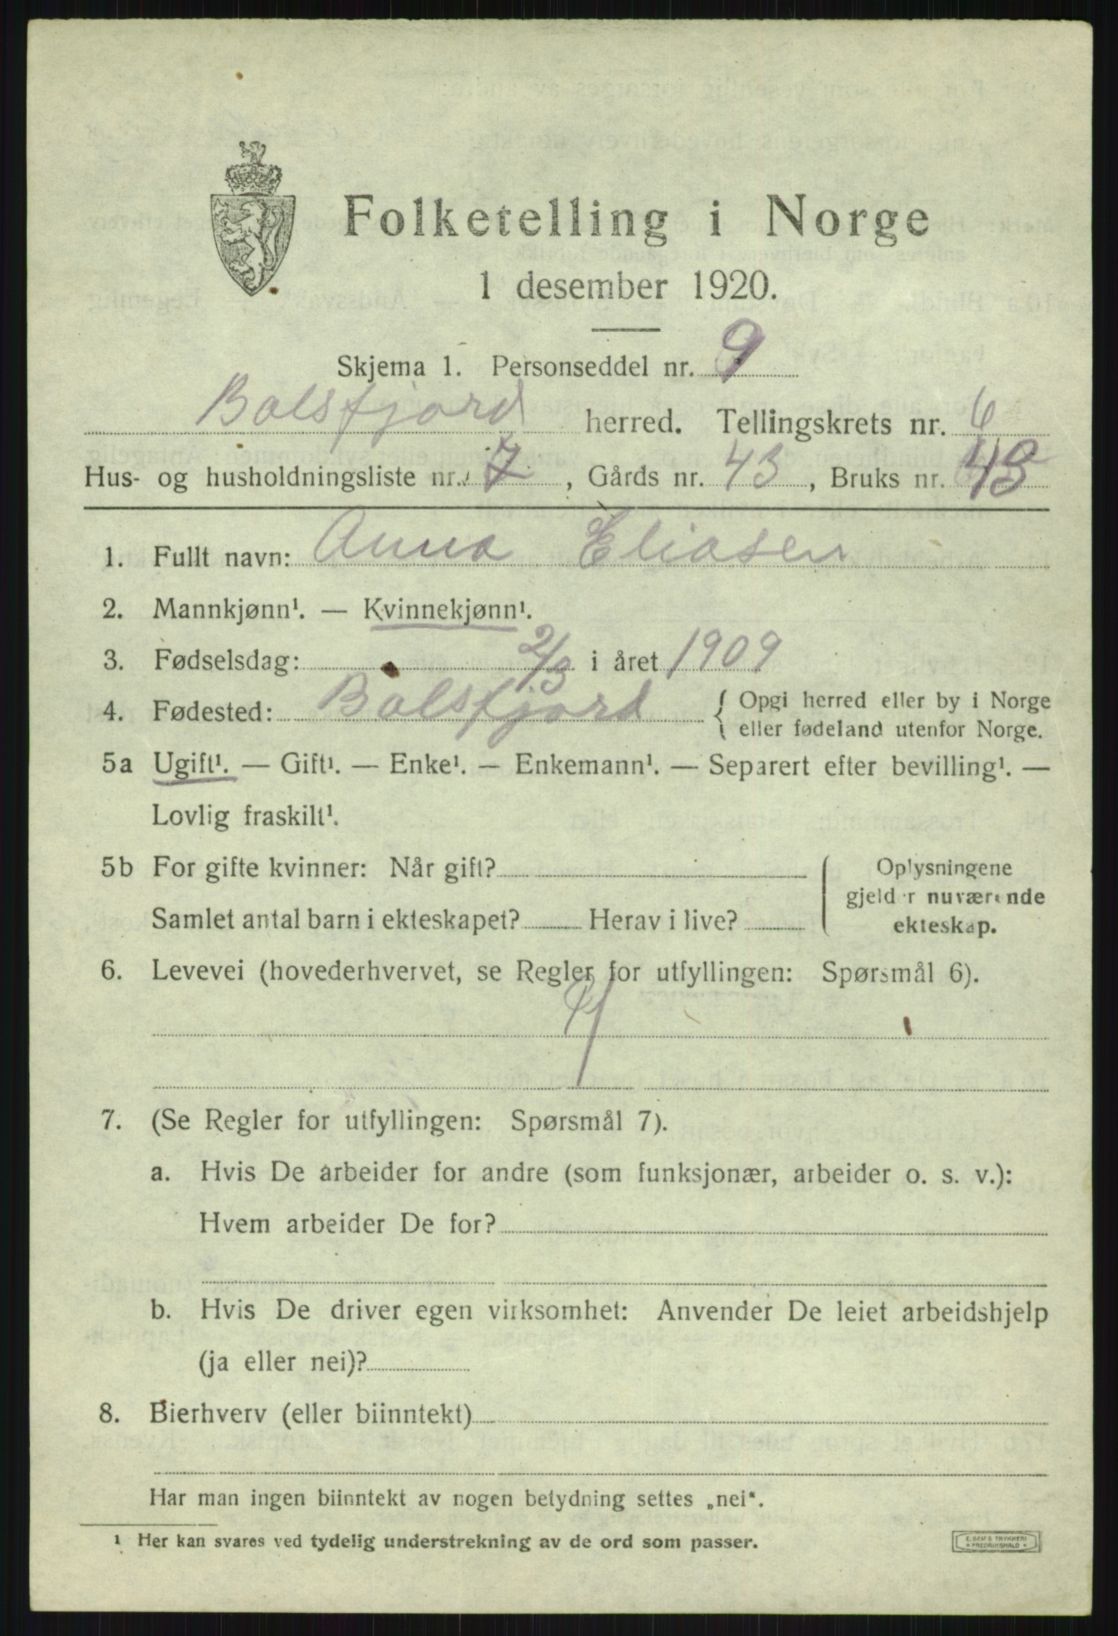 Folketelling i Norge
1 desember 1920.
Skjema 1. Personseddel nr. 9
Balsfjord herred. Tellingskrets nr. 6
Hus- og husholdningsliste nr. 7, Gårds nr. 43, Bruks nr.
1. Fullt navn: Anna Eliasen
2. Mannkjønn¹. — Kvinnekjønn¹.
3. Fødselsdag: 2/3 i året 1909
4. Fødested: Balsfjord { Opgi herred eller by i Norge
eller fødeland utenfor Norge.
5a Ugift¹. — Gift¹. — Enke¹. — Enkemann¹. — Separert efter bevilling¹. —
Lovlig fraskilt¹.
5b For gifte kvinner: Når gift?
Samlet antal barn i ekteskapet? Herav i live?
Oplysningene
gjelder nuværende
ekteskap.
6. Levevei (hovederhvervet, se Regler for utfyllingen: Spørsmål 6).
7. (Se Regler for utfyllingen: Spørsmål 7).
a. Hvis De arbeider for andre (som funksjonær, arbeider o. s. v.):
Hvem arbeider De for?
b. Hvis De driver egen virksomhet: Anvender De leiet arbeidshjelp
(ja eller nei)?
8. Bierhverv (eller biinntekt)
Har man ingen biinntekt av nogen betydning settes „nei“.
¹ Her kan svares ved tydelig understrekning av de ord som passer.